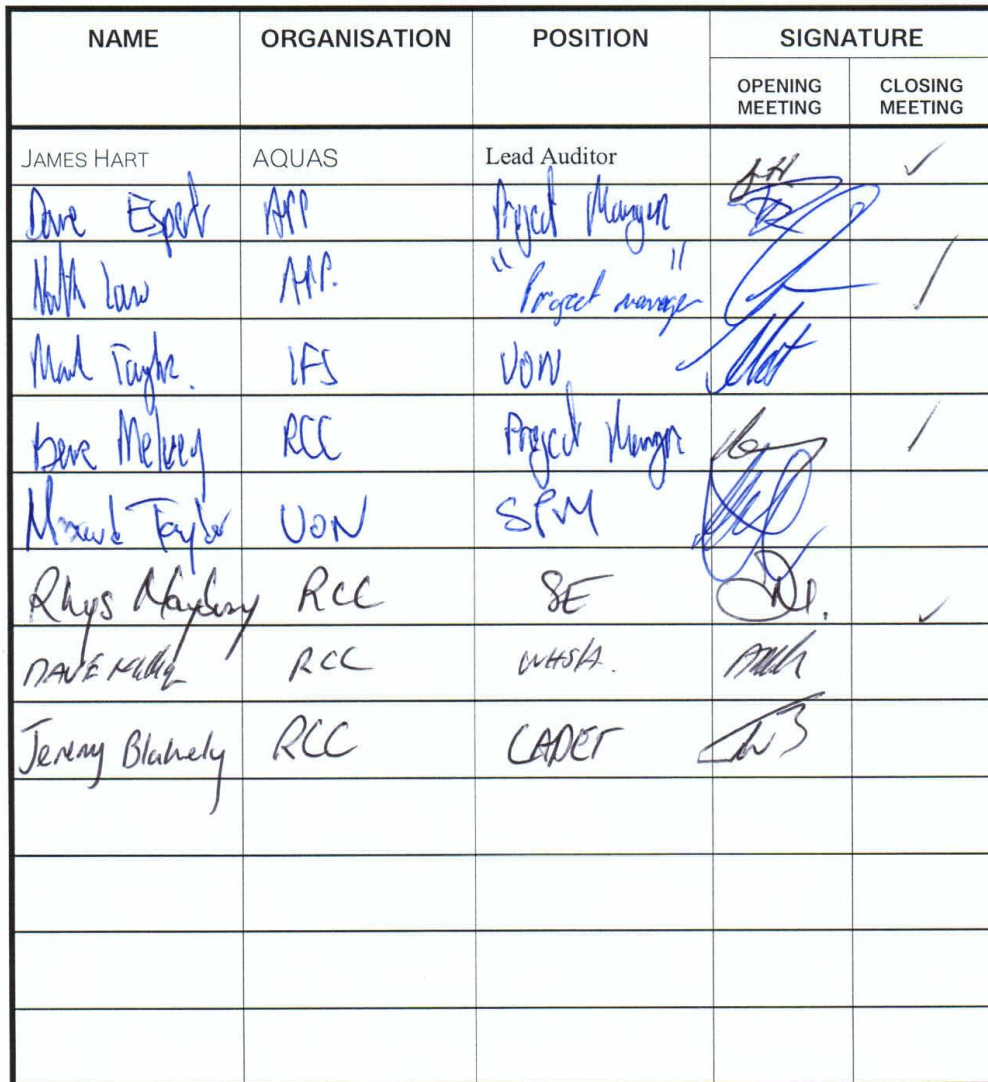 NAME ORGANISATION POSITION SIGNATURE
OPENING MEETING CLOSING MEETING
JAMES HART AQUAS Lead Auditor JH ✓
Dave APP Project Manager
Law APP. " Project manager "
Mark Taylor. IFS UON
RCC Project Manager
Taylor UON SPM
Rhys RCC SE ✓
DAVE RCC WHSA.
Jeremy Blakely RCC CADET